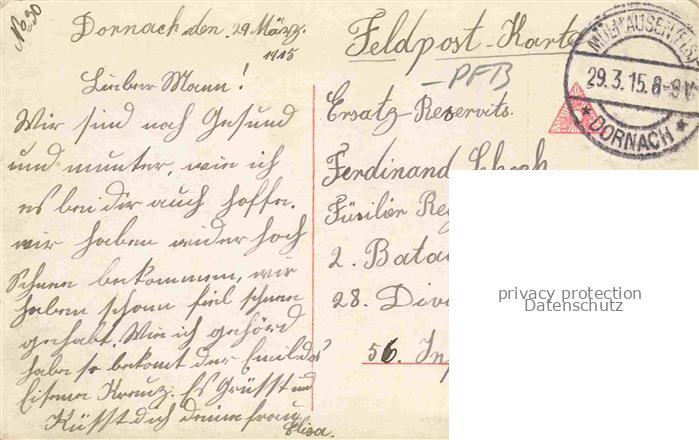 No 30
Dornach den 29 März.
1915
Lieber Mann!
Wir sind noch Gesund
und munter, wie ich
es bei dir auch hoffe.
wir haben wider hoch
Schnee bekommen, wir
haben schonn fiel schnee
gehabt. Wie ich gehörd
habe so bekomt der Emil das
Eisene Kreuz. Es Grüsst und
Küsst dich deine frau
Elisa.
Feldpost-Karte
PFB
MÜLHAUSEN (ELS)
29.3.15.8-9V
* DORNACH *
Ersatz-Reservits.
Ferdinand
Füsilier Reg
2. Bata
28. Div
56. In
privacy protection
Datenschutz